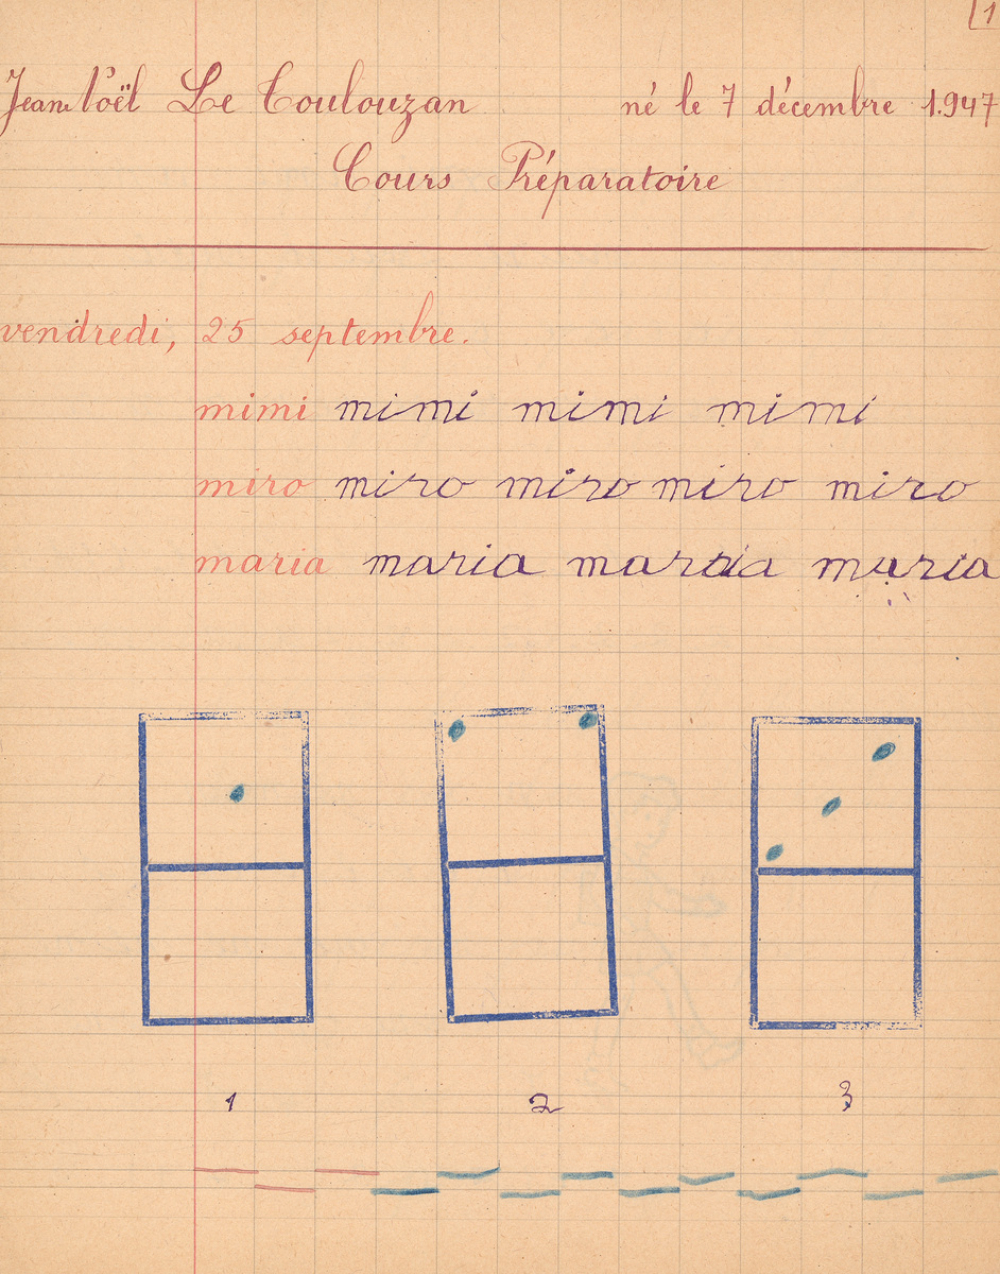 1
Jean Noël Le Coulouzan né le 7 décembre 1.947
Cours Préparatoire
vendredi, 25 septembre.
mimi mimi mimi mimi
miro miro miro miro miro
maria maria maria maria
1 2 3